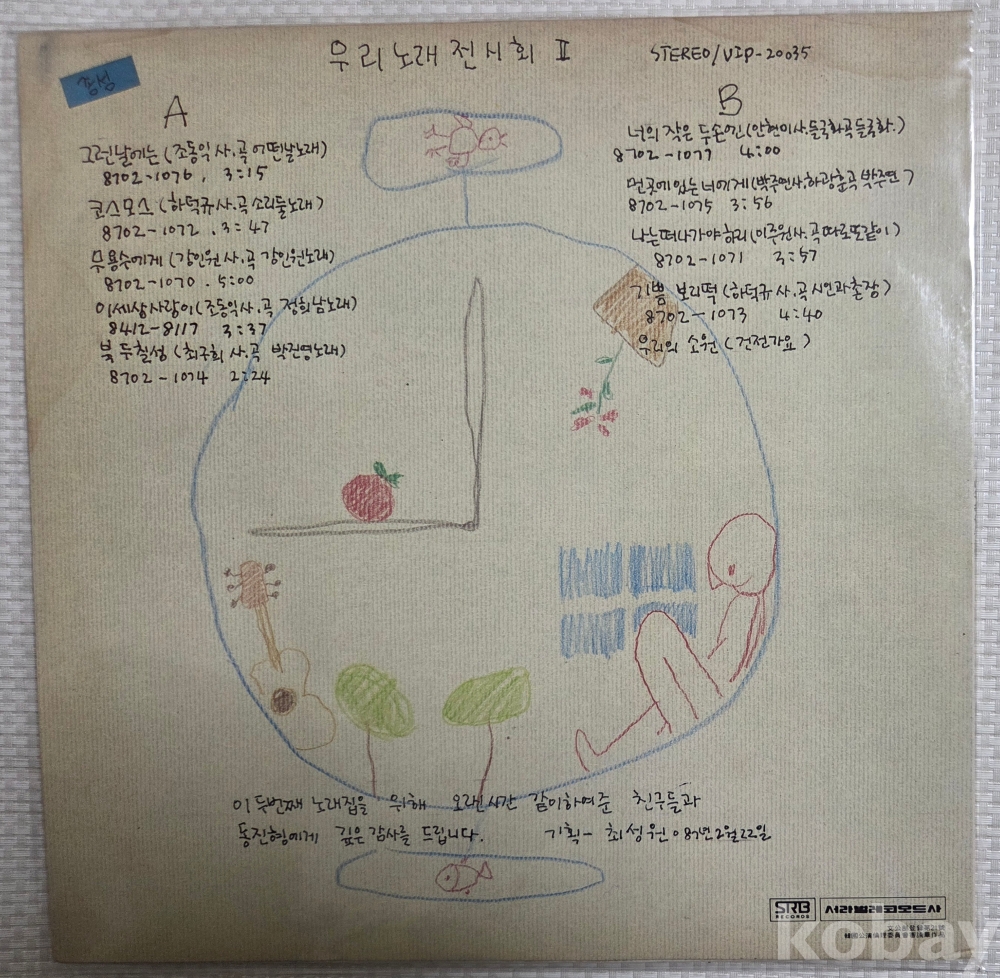 우리노래전시회 II
STEREO/VIP-20035
A
그런날에는 (조동익 사.곡 어떤날노래)
8702-1076. 3:15
코스모스 (하덕규 사.곡 소리들노래)
8702-1072. 3:47
무용수에게 (강인원 사.곡 강인원노래)
8702-1070. 5:00
이세상사랑이 (조동익 사.곡 정희남노래)
8412-8117 3:37
북두칠성 (최구희 사.곡 박진영노래)
8702-1074 2:24
B
너의 작은 두손엔 (안현미사.들국화곡 들국화.)
8702-1077 4:00
먼곳에있는 너에게 (박주연사.하광훈곡 박주연)
8702-1075 3:56
나는 떠나가야하리 (이주원사.곡 따로또같이)
8702-1071 3:57
기쁨 보리떡 (하덕규 사.곡 시인과촌장)
8702-1073 4:40
우리의 소원 (건전가요)
이 두번째 노래집을 위해 오랜시간 같이하여준 친구들과
동진형에게 깊은 감사를 드립니다. 기획- 최성원. 87년 2월 22일
SRB
RECORDS
서라벌레코오드사
kobay